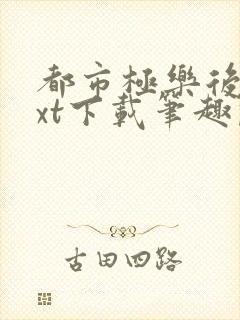 都市極樂後
xt下載筆趣
古田四路